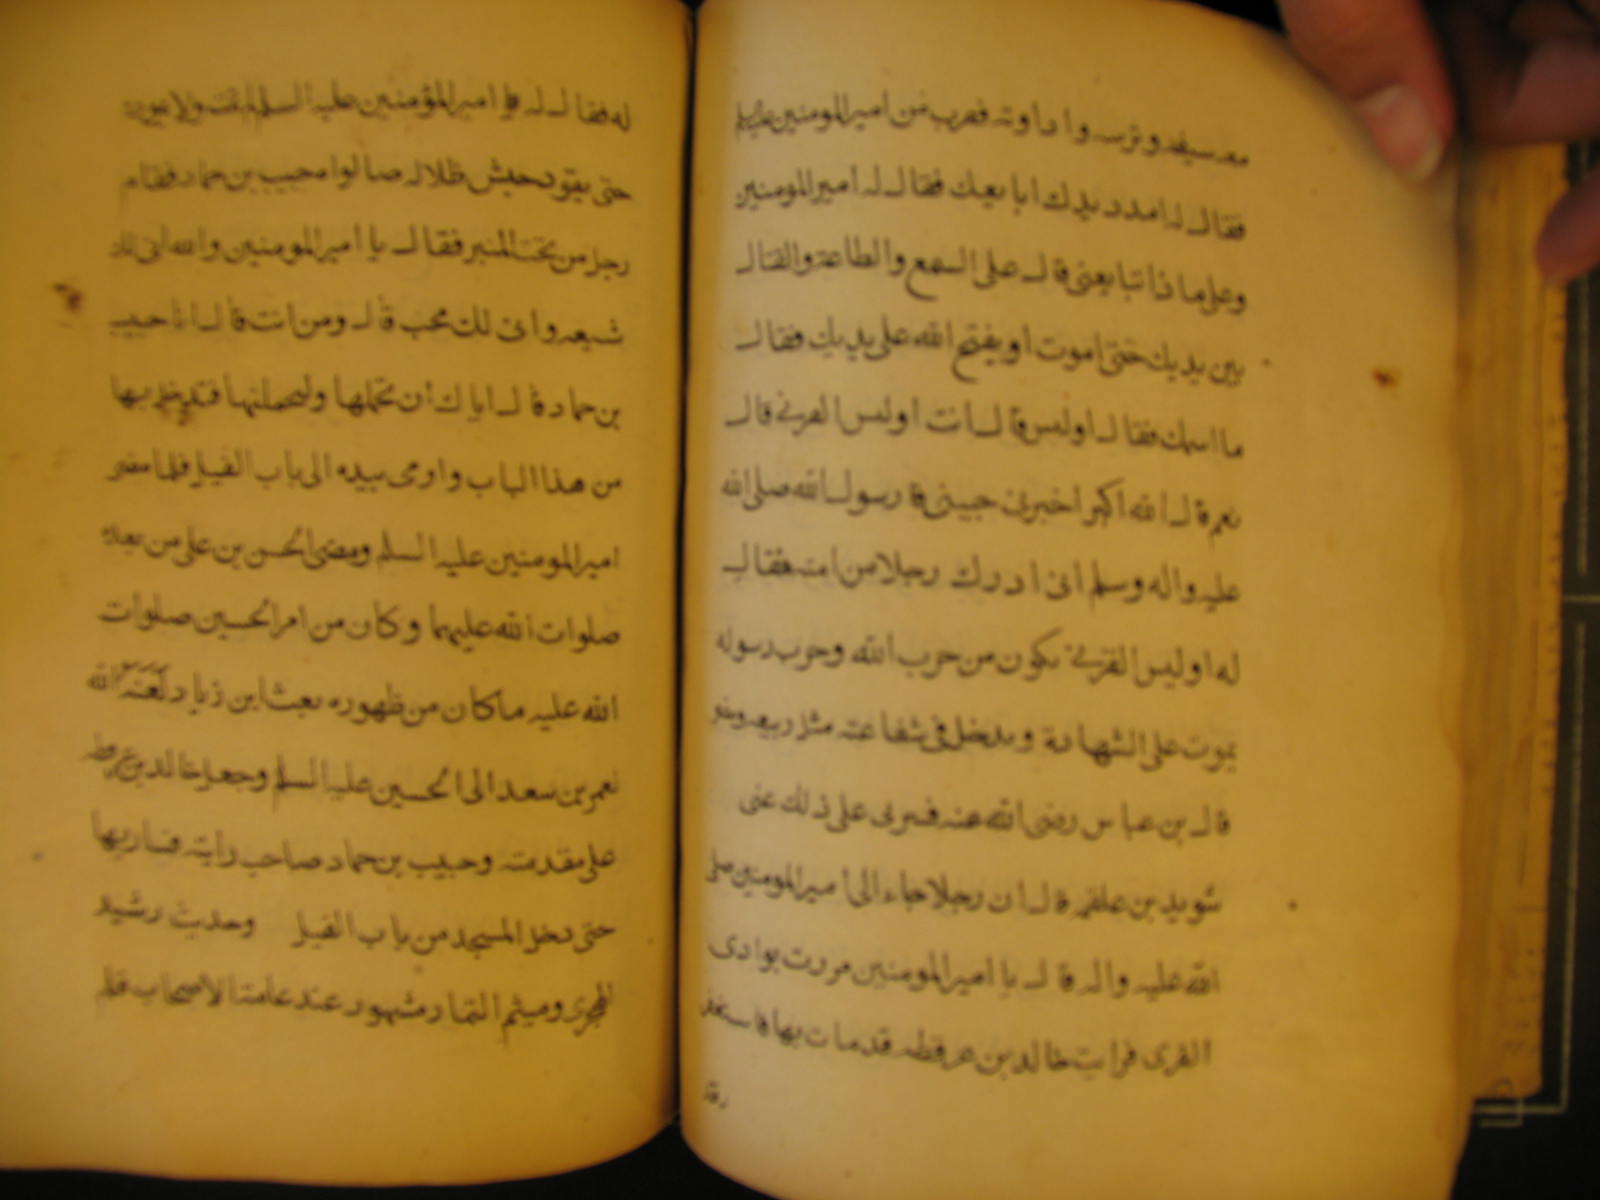 معه سيفه وترسه واداوته فقرب من امير المومنين عليه السلم
فقال له امدد يدك ابايعك فقال له امير المومنين
وعلى ما ذا تبايعنى قال على السمع والطاعة والقتال
بين يديك حتى اموت او يفتح الله على يديك فقال
ما اسمك فقال اويس قال انت اويس القرنى قال
نعم قال الله اكبر اخبرنى حبيبى رسول الله صلى الله
عليه واله وسلم انى ادرك رجلا من امته فقال
له اويس القرنى يكون من حزب الله وحزب رسوله
يموت على الشهادة ويدخل فى شفاعته مثل ربيعه ومضر
قال بن عباس رضى الله عنه فسرى على ذلك عنى
سويد بن علقمه قال ان رجلا جاء الى امير المومنين صلى
الله عليه واله قال يا امير المومنين مررت بوادى
القرى فرايت خالد بن عرفطه قد مات بها فاستغفر
له فقال له امير المؤمنين عليه السلم لم يمت ولا يموت
حتى يقود جيش ظلاله حبيب بن حماد فقام
رجل من تحت المنبر فقال يا امير المومنين والله انى لك
شيعه وانى لك محب قال ومن انت قال انا حبيب
بن حماد قال اياك ان تحملها ولتحملنها فتدخل بها
من هذا الباب واومى بيده الى باب الفيل فلما مضى
امير المومنين عليه السلم ومضى الحسن بن على من بعده
صلوات الله عليهما وكان من امر الحسين صلوات
الله عليه ما كان من ظهوره بعث ابن زياد لعنه الله
بعمر بن سعد الى الحسين عليه السلم وجعل خالد بن عرفطه
على مقدمته وحبيب بن حماد صاحب رايته فسار بها
حتى دخل المسجد من باب الفيل وحديث رشيد
الهجرى وميثم التمار مشهور عند عامة الاصحاب فلم